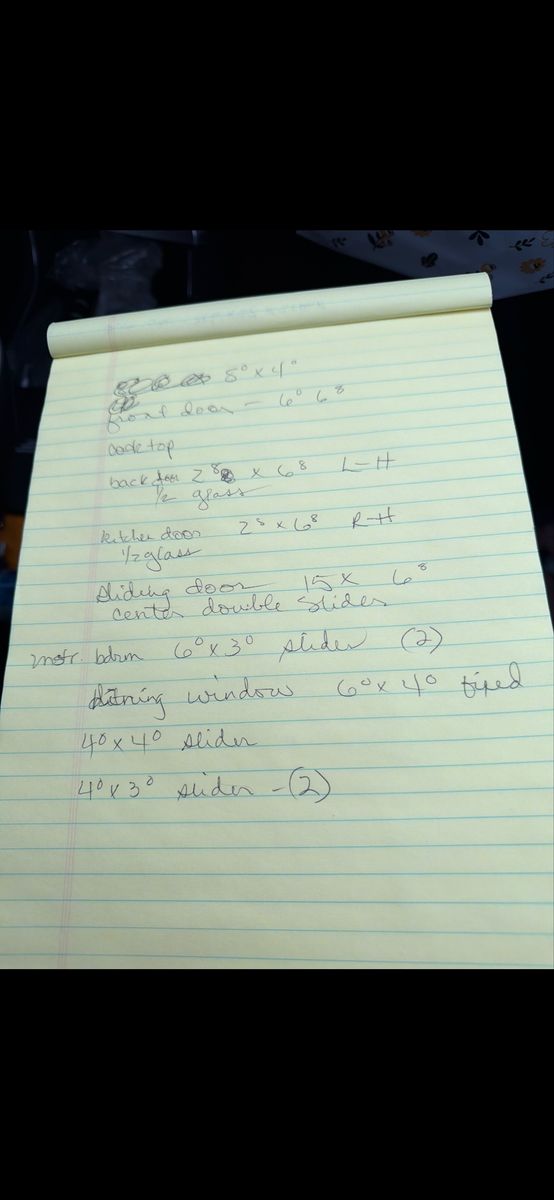 5⁰ x 4⁰
front door - 6⁰ 6⁸
cook top
back door 2⁸ x 6⁸ L-H
1/2 glass
kitchen door 2⁸ x 6⁸ R-H
1/2 glass
sliding door 15 x 6⁸
center double slider
mstr. bdrm 6⁰ x 3⁰ slider (2)
dining window 6⁰ x 4⁰ fixed
4⁰ x 4⁰ slider
4⁰ x 3⁰ slider - (2)